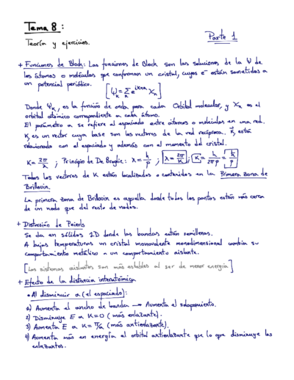 Tema 8:
Parte 1
Teoría y ejercicios.
+ Funciones de Bloch: Las funciones de Bloch son las soluciones de la Ψ de
los átomos o moléculas que conforman un cristal, cuyos e⁻ están sometidos a
un potencial periódico.
Donde Ψκ, es la función de onda para cada Orbital molecular, y Xn es el
orbital atómico correspondiente a cada átomo.
El parámetro a se refiere al espaciado entre átomos o moléculas en una red.
K, es un vector cuya base son los vectores de la red recíproca. K, está
relacionado con el espaciado y además con el momento del cristal.
K = 2π/λ ; Principio de De Broglie: λ = h/p
Todos los vectores de K están localizados o contenidos en la Primera Zona de
Brillouin.
La primera zona de Brillouin es aquella donde todos los puntos están más cerca
de un nodo que del resto de nodos.
+ Distorsión de Peierls
Se da en sólidos 1D donde las bandas están semillenas.
A bajas temperaturas un cristal monoatómico monodimensional cambia su
comportamiento metálico a un comportamiento aislante.
[Los sistemas aislantes son más estables al ser de menor energía]
+ Efecto de la distancia interatómica
• Al disminuir a (el espaciado):
a) Aumenta el ancho de banda → Aumenta el solapamiento.
b) Disminuye E a K=0 (más enlazante).
c) Aumenta E a K=π/a (más antienlazante).
d) Aumenta más en energía el orbital antienlazante que lo que disminuye los
enlazantes.